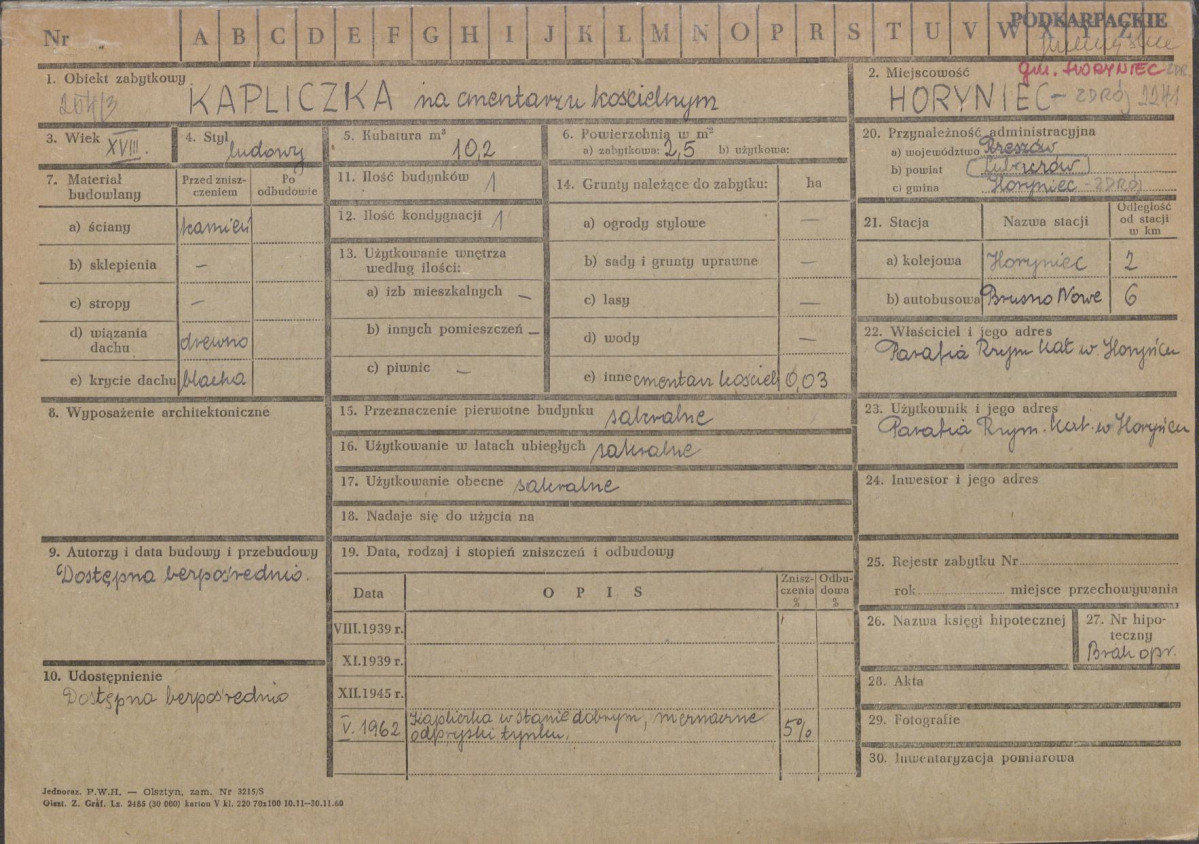 Nr A B C D E F G H I J K L M N O P R S T U V W X Y Z
PODKARPACKIE
gm. HORYNIEC ZDR.
1. Obiekt zabytkowy
KAPLICZKA na cmentarzu kościelnym
2. Miejscowość
HORYNIEC - ZDRÓJ 2271
3. Wiek XVIII.
4. Styl ludowy
5. Kubatura m³
10,2
6. Powierzchnia w m²
a) zabytkowa: 2,5 b) użytkowa:
7. Materiał budowlany
Przed znisz-
czeniem
Po
odbudowie
a) ściany kamień
b) sklepienia —
c) stropy —
d) wiązania
dachu drewno
e) krycie dachu blacha
8. Wyposażenie architektoniczne
9. Autorzy i data budowy i przebudowy
Dostępna bezpośrednio.
10. Udostępnienie
Dostępna bezpośrednio
11. Ilość budynków 1
12. Ilość kondygnacji 1
13. Użytkowanie wnętrza
według ilości:
a) izb mieszkalnych —
b) innych pomieszczeń —
c) piwnic —
14. Grunty należące do zabytku: ha
a) ogrody stylowe —
b) sady i grunty uprawne —
c) lasy —
d) wody —
e) inne cmentarz kościel 0,03
15. Przeznaczenie pierwotne budynku sakralne
16. Użytkowanie w latach ubiegłych sakralne
17. Użytkowanie obecne sakralne
18. Nadaje się do użycia na
19. Data, rodzaj i stopień zniszczeń i odbudowy
Data O P I S
Znisz-
czenia
%
Odbu-
dowa
%
VIII.1939 r.
XI.1939 r.
XII.1945 r.
V. 1962 Kapliczka w stanie dobrym, nieznaczne
odpryski tynku. 5%
20. Przynależność administracyjna
a) województwo Rzeszów
b) powiat Lubaczów
c) gmina Horyniec - ZDRÓJ
21. Stacja Nazwa stacji
Odległość
od stacji
w km
a) kolejowa Horyniec 2
b) autobusowa Brusno Nowe 6
22. Właściciel i jego adres
Parafia Rzym Kat w Horyńcu
23. Użytkownik i jego adres
Parafia Rzym. Kat. w Horyńcu
24. Inwestor i jego adres
25. Rejestr zabytku Nr
rok miejsce przechowywania
26. Nazwa księgi hipotecznej
27. Nr hipo-
teczny
Brak opr.
28. Akta
29. Fotografie
30. Inwentaryzacja pomiarowa
Jednoraz. P.W.H. — Olsztyn, zam. Nr 3218/S
Olszt. Z. Graf. Lz. 2485 (30 000) karton V kl. 220 70x100 10.11—30.11.60